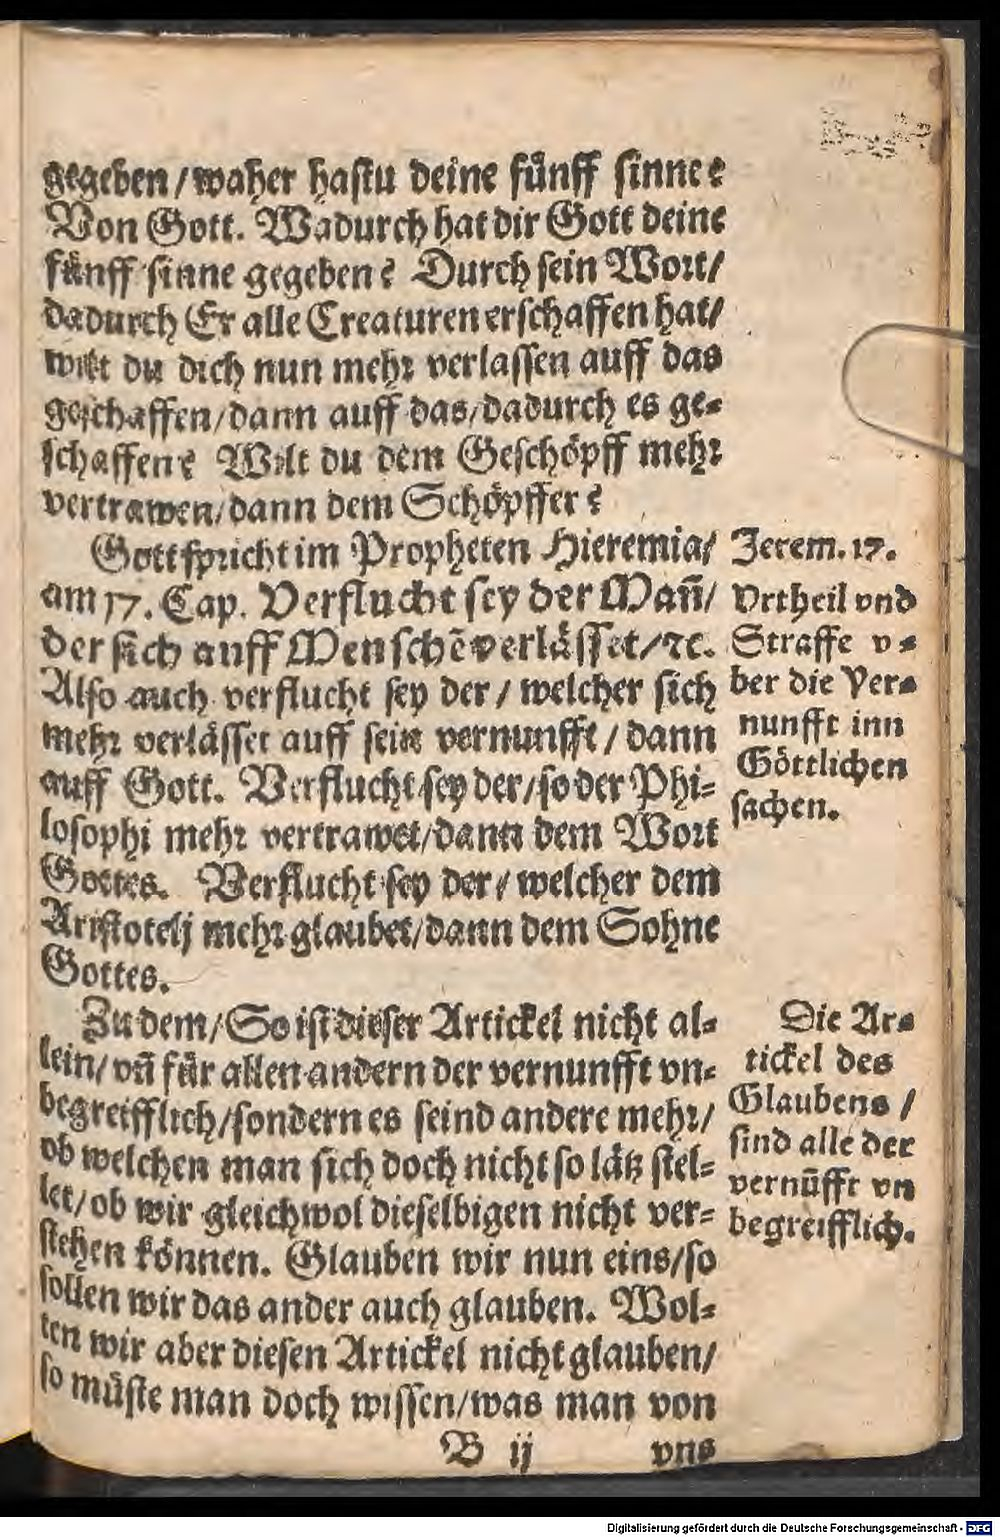 gegeben / waher hastu deine fünff sinne?
Von Gott. Wadurch hat dir Gott deine
fünff sinne gegeben? Durch sein Wort /
dadurch Er alle Creaturen erschaffen hat /
wilt du dich nun mehr verlassen auff das
geschaffen / dann auff das / dadurch es ge-
schaffen? Wilt du dem Geschöpff mehr
vertrawen / dann dem Schöpffer?
Gott spricht im Propheten Hieremia /
am 17. Cap. Verflucht sey der Man̄ /
der sich auff Menschē verlässet / ꝛc.
Also auch verflucht sey der / welcher sich
mehr verlässet auff sein vernunfft / dann
auff Gott. Verflucht sey der / so der Phi-
losophi mehr vertrawet / dann dem Wort
Gottes. Verflucht sey der / welcher dem
Aristotelj mehr glaubet / dann dem Sohne
Gottes.
Zu dem / So ist dieser Artickel nicht al-
lein / vn̄ für allen andern der vernunfft vn-
begreifflich / sondern es seind andere mehr /
ob welchen man sich doch nicht so lätz stel-
let / ob wir gleichwol dieselbigen nicht ver-
stehen können. Glauben wir nun eins / so
sollen wir das ander auch glauben. Wol-
ten wir aber diesen Artickel nicht glauben /
so müste man doch wissen / was man von
B ij vns
Jerem. 17.
Vrtheil vnd
Straffe v-
ber die Ver-
nunfft inn
Göttlichen
sachen.
Die Ar-
tickel des
Glaubens /
sind alle der
vernūfft vn
begreifflich.
Digitalisierung gefördert durch die Deutsche Forschungsgemeinschaft - DFG